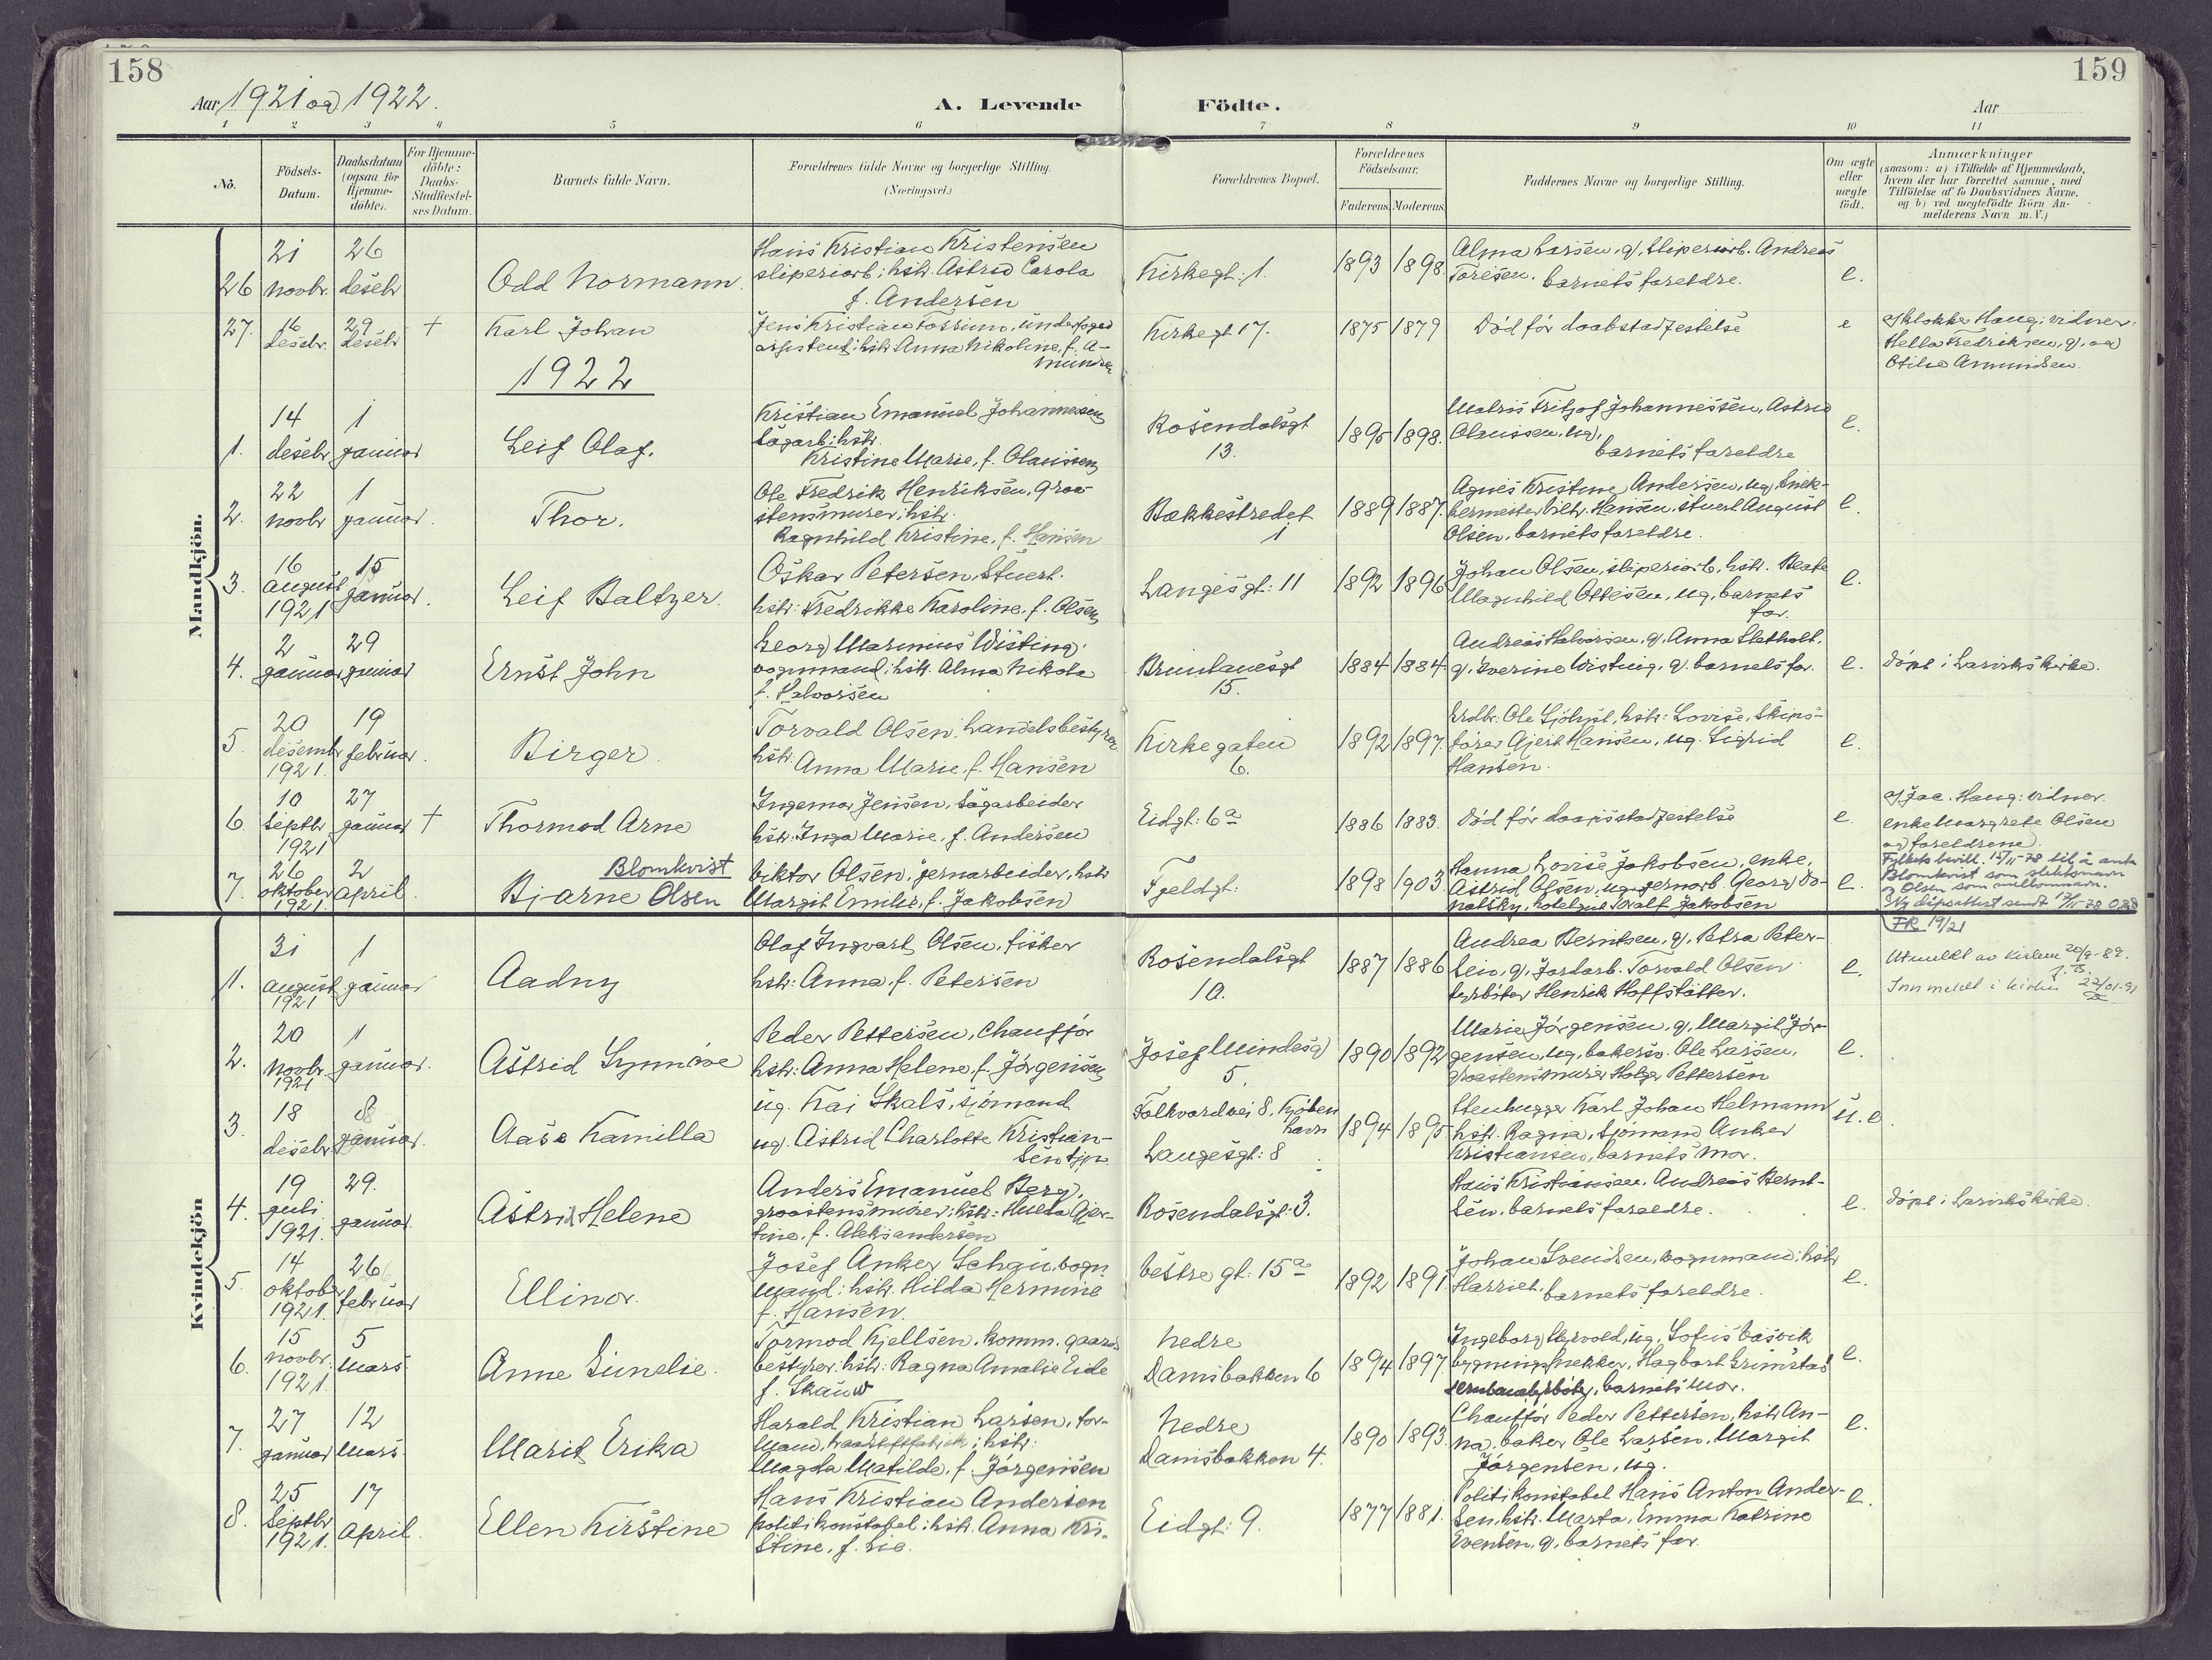 158
159
Aar 1921 og 1922.
A. Levende Födte.
Aar
1 2 3 4 5 6 7 8 9 10 11
No.
Födsels-Datum.
Daabsdatum (ogsaa for Hjemme-döbte).
For Hjemme-döbte: Daabs-Stadfæstel-ses Datum.
Barnets fulde Navn.
Forældrenes fulde Navne og borgerlige Stilling.
(Næringsvei.)
Forældrenes Bopæl.
Forældrenes Födselsaar.
Faderens. Moderens.
Faddernes Navne og borgerlige Stilling.
Om ægte eller uægte födt.
Anmærkninger
(saasom: a) i Tilfælde af Hjemmedaab, hvem der har forrettet samme, med Tilföielse af to Daabsvidners Navne, og b) ved uægtefödte Börn An-melderens Navn m. V.)
Mandkjön.
26 21 novbr. 26 desebr Odd Normann.
Hans Kristian Kristensen
sliperiarb; hstr. Astrid Carola
f. Andersen
Kirkegt: 1. 1893 1898.
Alma Larsen, g, sliperiarb. Andreas
Toresen. barnets foreldre.
e.
27. 16 desebr. 29 desebr + Karl Johan
Jens Kristian Fossum, underfoged
assistent; hstr Anna Nikoline, f. A-
mundsen
Kirkegt 17. 1875 1879
Död för daabstadfestelse
e
af klokker Haug; vidner:
Hella Fredriksen, g, og
Otilie Amundsen.
1922
1. 14 desebr 1 januar Leif Olaf.
Kristian Emanuel Johannesen
sagarb; hstr.
Kristine Marie, f. Olaussen
Rosendalsgt
13.
1895 1898.
Fritjof Johannessen, Astrid
Olaussen, ug,
barnets foreldre
e.
2. 22 novbr 1 januar. Thor.
Ole Fredrik Henriksen, graa-
stensmurer; hstr.
Ragnhild Kristine, f. Hansen
Bakkestredet
1
1889 1887.
Agnes Kristine Andersen, ug, Snek-
kermester Hansen, stuert August
Olsen, barnets foreldre.
e.
3. 16 august 1921 15 januar. Leif Baltzer.
Oskar Petersen, Stuert.
hstr: Fredrikke Karoline, f. Olsen
Langesgt: 11 1892 1896
Johan Olsen, sliperiarb, hstr. Beate
Magnhild Ottesen, ug, barnets
far.
e.
4. 2 januar 29 januar Ernst John
Georg Marinius Wisting.
vognmand; hstr. Alma Nikola
f. Halvorsen
Brunlanesgt
15.
1884 1884.
Andreas Halvorsen, g. Anna Sletholt.
g, Iverine Wisting, g. barnets far.
e.
döpt i Larviks kirke.
5. 20 desembr 1921. 19 februar. Birger.
Torvald Olsen, handelsbestyrer
hstr: Anna Marie, f. Hansen
Kirkegaten
6.
1892 1897.
Ole Sjöqvist, hstr: Lovise, Skips-
förer Ajert Hansen, ug. Sigrid
Hansen.
e.
6. 10 septbr 1921 27 januar + Thormod Arne
Ingemar Jensen, sagarbeider
hstr: Inga Marie, f. Andersen
Eidgt: 6a 1886 1883.
Död för daapsstadfestelse
e.
af Jac. Haug: vidner.
enke Margrete Olsen
og foreldrene.
7. 26 oktober 1921. 2 april.
Blomkvist
Bjarne Olsen
Viktor Olsen, jernarbeider, hstr
Margit Emilie, f. Jakobsen
Fjeldgt: 1898 1903.
Hanna Lovise Jakobsen, enke,
Astrid Olsen, ug, jernarb. Georg Do-
natsky, Toralf Jakobsen
e.
Fylkets bevill. 15/11-78 til å anta
Blomkvist som slektsnavn
og Olsen som mellomnavn.
Ny dåpsattest sendt 17/11-78
Kvindekjön
1. 31 august 1921 1 januar Aadny
Olaf Ingvart Olsen, fisker
hstr: Anna, f. Petersen
Rosendalsgt
10.
1887 1886
Andrea Berntsen, g, Petra Peter-
sen, g, jordarb. Torvald Olsen
fyrböter Henrik Hoffstätter.
e.
FR 19/21
Utmeldt av kirken 20/9-82.
Innmeldt i kirken 22/01-91
2. 20 novbr. 1921 1 januar. Astrid Synnöve
Peder Pettersen, Chaufför
hstr: Anna Helene, f. Jörgensen
Josef Mindesg
5.
1890 1892
Marie Jörgensen, g, Margit Jör-
gensen, ug, bakersv. Ole Larsen,
graastensmurer Holger Pettersen
e.
3. 18 desebr. 8 januar. Aase Kamilla
ug. Kai Skals, sjömand
ug. Astrid Charlotte Kristian-
sen tjp.
Falkvardvei 8, Kjöben
havn
Langesgt: 8
1894 1895.
Stenhugger Karl Johan Helmann
hstr. Ragna, Sjömand Anker
Kristiansen, barnets mor.
u.e.
4. 19 juli 1921. 29. januar. Astrid Helene
Anders Emanuel Berg,
graastensmurer; hstr: Hulda Gjer-
tine, f. Aleksandersen
Rosendalsgt: 3.
Hans Kristiansen, Andreas Bernt-
sen, barnets foreldre.
e.
döpt i Larviks kirke.
5. 14 oktober 1921. 26 februar Ellinor.
Josef Anker Schau, vogn-
mand; hstr. Hilda Hermine
f. Hansen.
Vestre gt: 15a 1892 1891.
Johan Svendsen, vognmand; hstr
Harriet, barnets foreldre.
e.
6. 15 novbr. 1921. 5 mars. Anne Sunelie.
Tormod Kjellsen, komm. gaards
bestyrer; hstr: Ragna Amalie Eide
f. Skauw
Nedre
Damsbakken 6
1894 1897
Ingeborg Myrvold, ug, Sofus Vasvik
bygningssnekker, Hagbart Grimstad
barnets mor.
e.
7. 27 januar 12 mars. Marit Erika
Harald Kristian Larsen, for-
mand, ; hstr:
Magda Matilde, f. Jörgensen
Nedre
Damsbakken 4.
1890 1893.
Chauffør Peder Pettersen, hstr An-
na, baker Ole Larsen, Margit
Jörgensen, ug.
e.
8. 25 septbr 1921. 17 april. Ellen Kirstine
Hans Kristian Andersen
politikonstabel; hstr. Anna Kri-
stine, f. Lie.
Eidgt: 9. 1877 1881.
Politikonstabel Hans Anton Ander-
sen, hstr. Marta, Emma Katrine
Evensen, g, barnets far.
e.